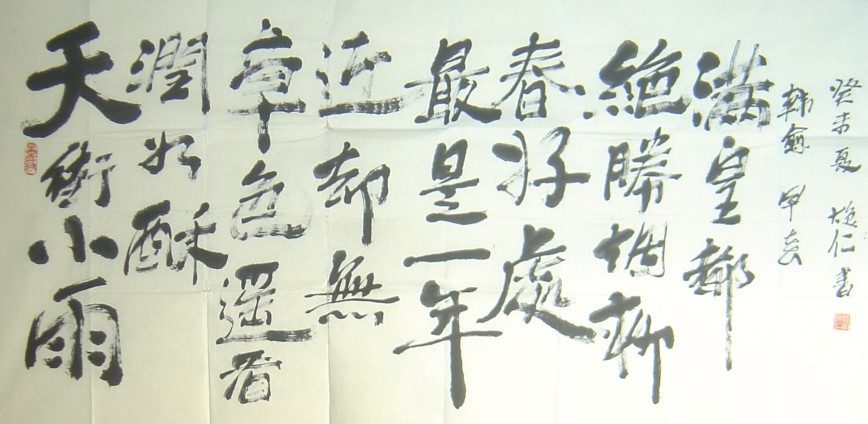 天街小雨
潤如酥
草色遥看
近却無
最是一年
春好處
絶勝烟柳
滿皇都
韩愈
癸未夏 仁書